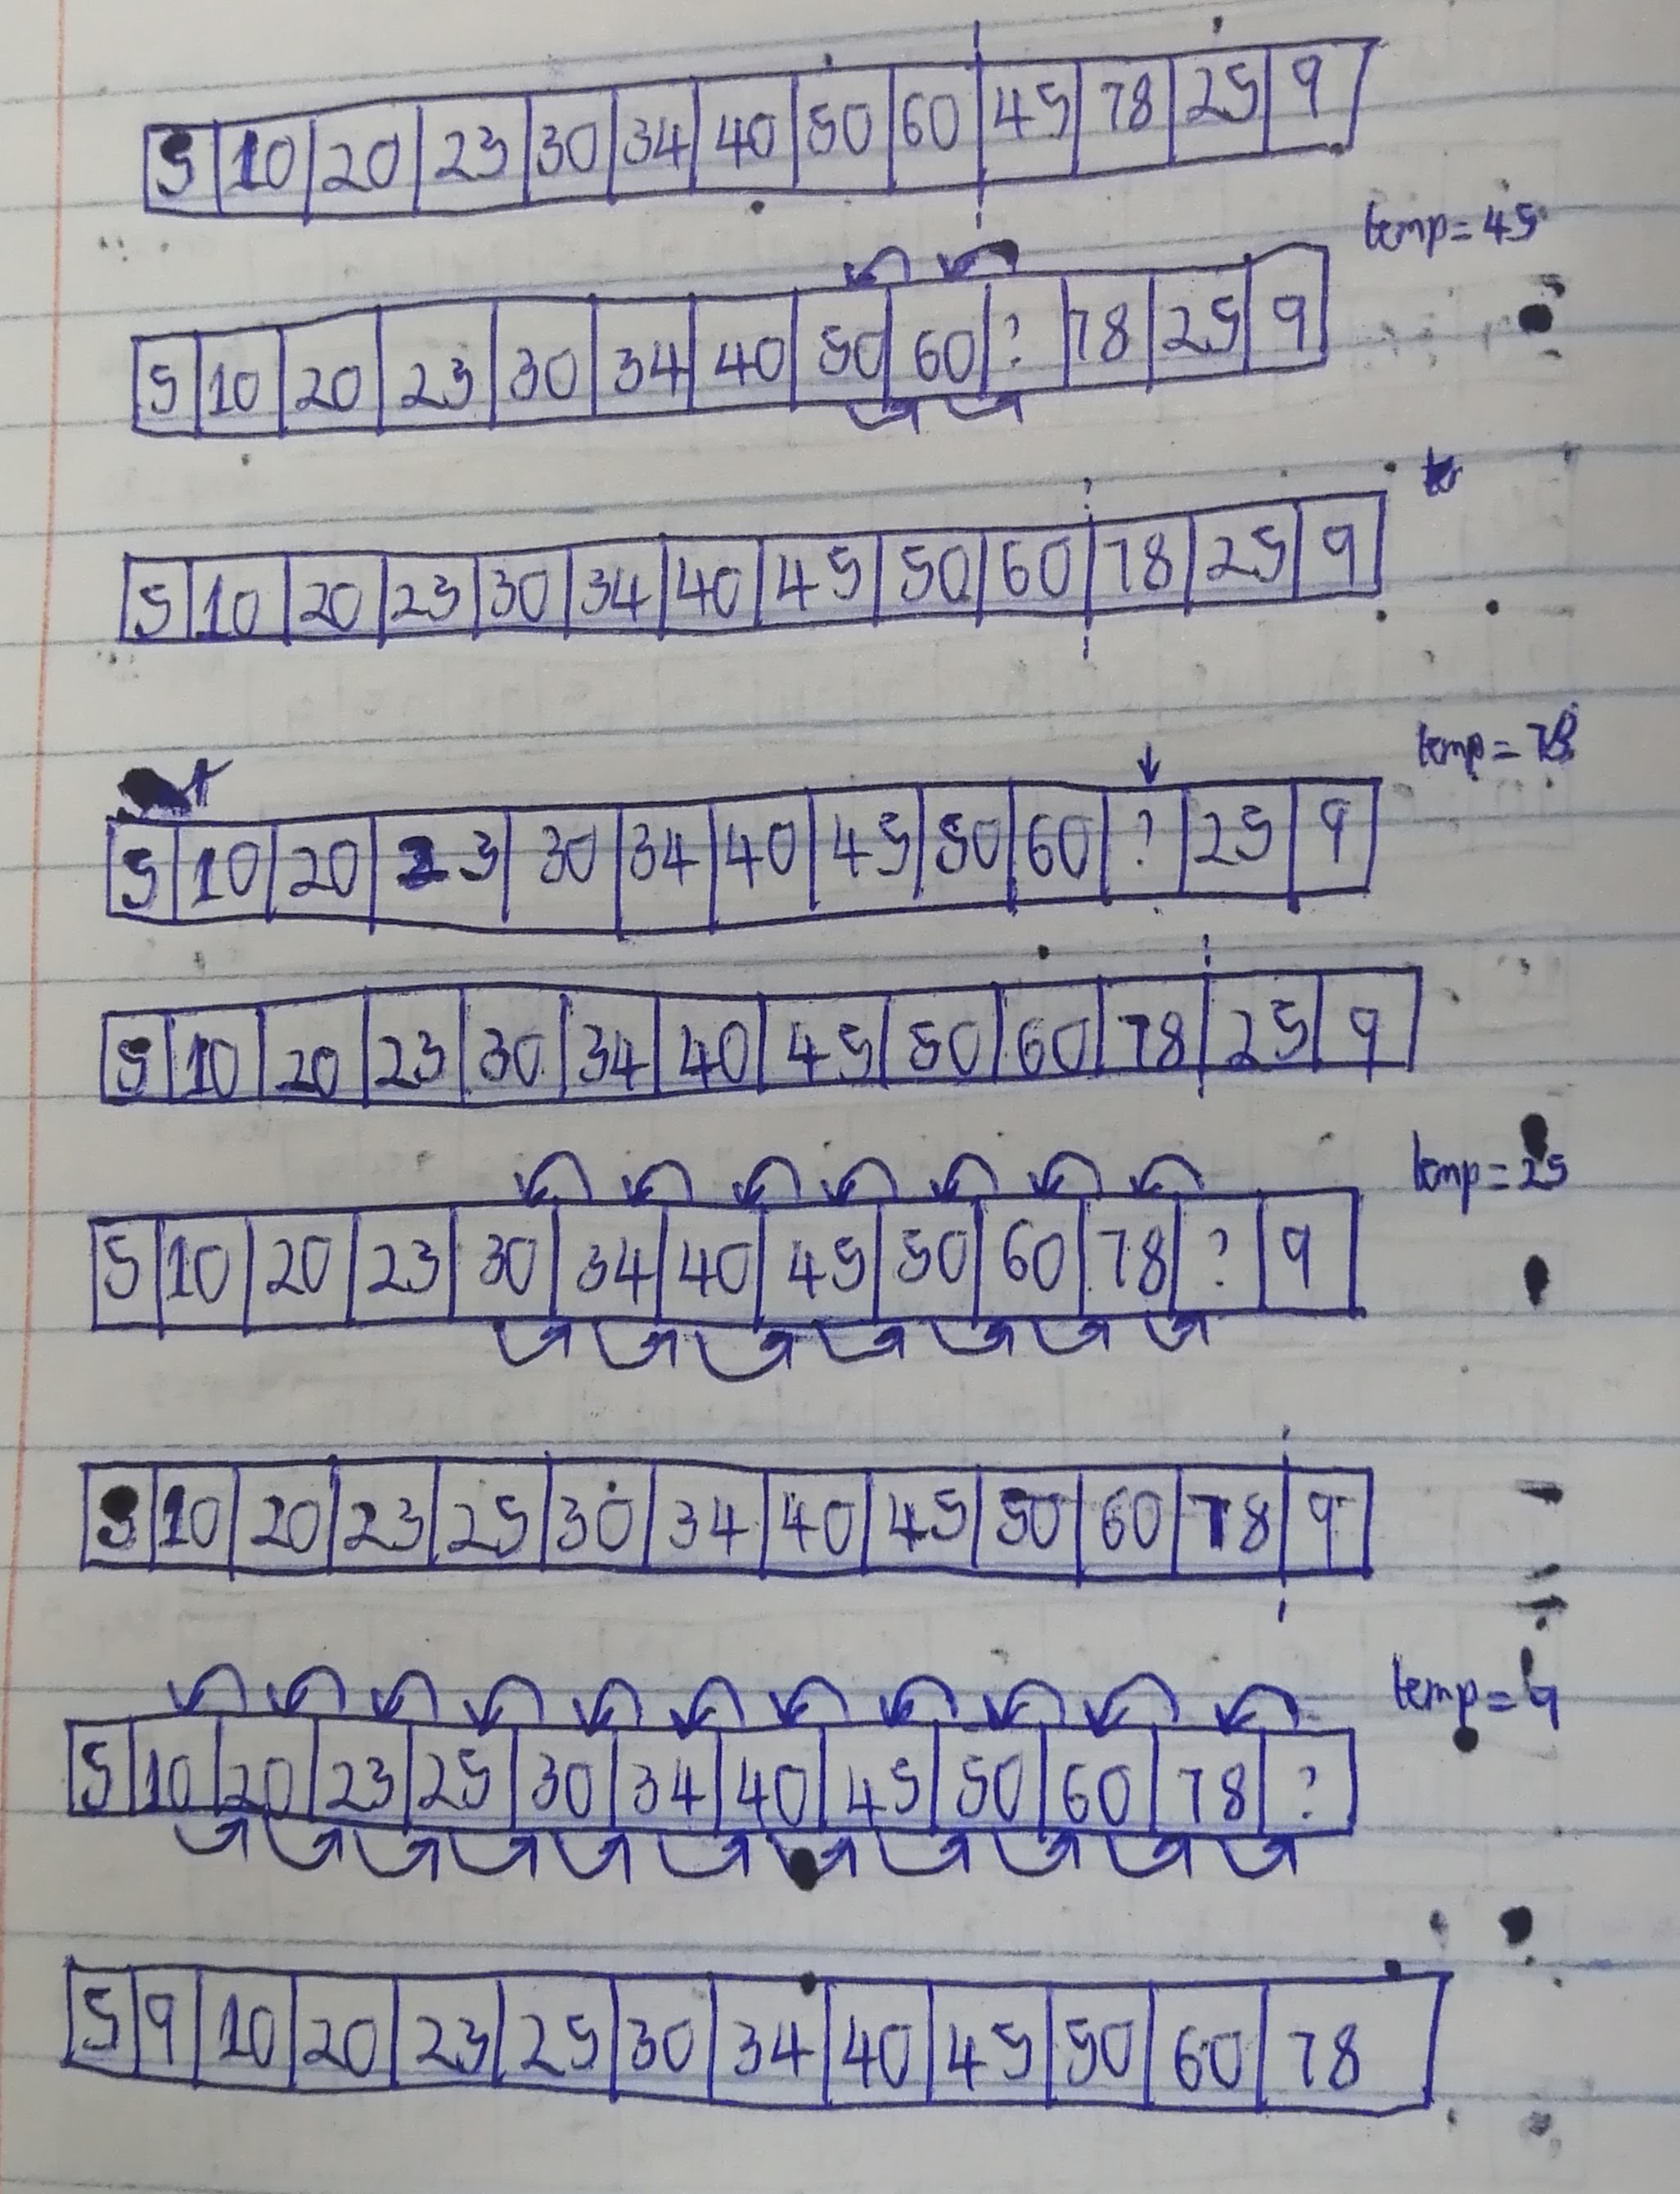 5 10 20 23 30 34 40 50 60 45 78 25 9
temp = 45
5 10 20 23 30 34 40 50 60 ? 78 25 9
5 10 20 23 30 34 40 45 50 60 78 25 9
temp = 78
5 10 20 23 30 34 40 45 50 60 ? 25 9
5 10 20 23 30 34 40 45 50 60 78 25 9
temp = 25
5 10 20 23 30 34 40 45 50 60 78 ? 9
5 10 20 23 25 30 34 40 45 50 60 78 9
temp = 9
5 10 20 23 25 30 34 40 45 50 60 78 ?
5 9 10 20 23 25 30 34 40 45 50 60 78